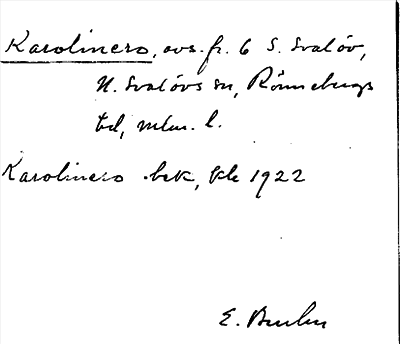 Karolinero, avs. fr. 6 S. Svalöv,
N. Svalövs sn, Rönnebergs
hd, mlm. l.
Karolinero -bek, kle 1922
E.